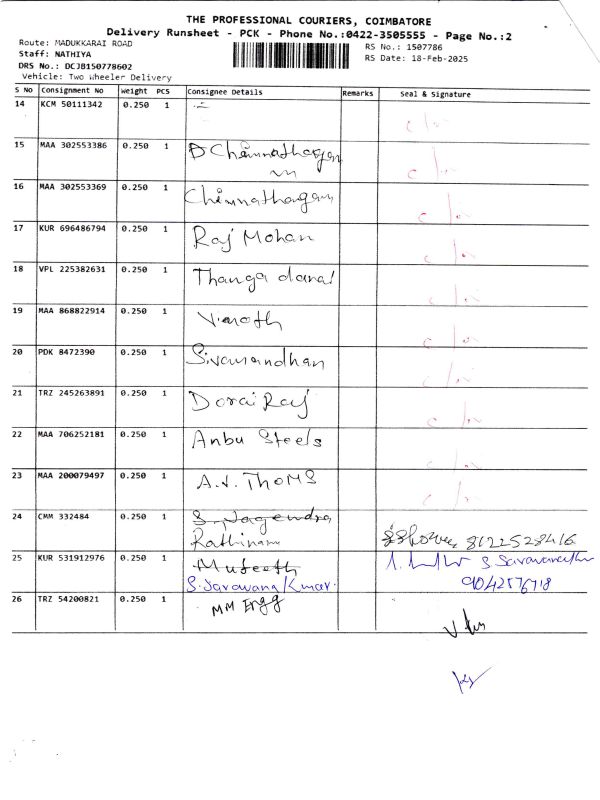 THE PROFESSIONAL COURIERS, COIMBATORE
Delivery Runsheet - PCK - Phone No.:0422-3505555 - Page No.:2
Route: MADUKKARAI ROAD
Staff: NATHIYA
DRS No.: DCJB150778602
Vehicle: Two Wheeler Delivery
RS No.: 1507786
RS Date: 18-Feb-2025
S No Consignment No Weight PCS Consignee Details Remarks Seal & Signature
14 KCM 50111342 0.250 1
15 MAA 302553386 0.250 1 D Chinnathagam
16 MAA 302553369 0.250 1 Chinnathagam
17 KUR 696486794 0.250 1 Raj Mohan
18 VPL 225382631 0.250 1 Thanga
19 MAA 868822914 0.250 1 Vinoth
20 PDK 8472390 0.250 1 Sivanandhan
21 TRZ 245263891 0.250 1 Dorai Raj
22 MAA 706252181 0.250 1 Anbu Steels
23 MAA 200079497 0.250 1 A.J. THOMS
24 CMM 332484 0.250 1 S. Nagendra
Rathinam 8122528416
25 KUR 531912976 0.250 1
S. Saravana Kumar. 9042576718
26 TRZ 54200821 0.250 1 MM Engg